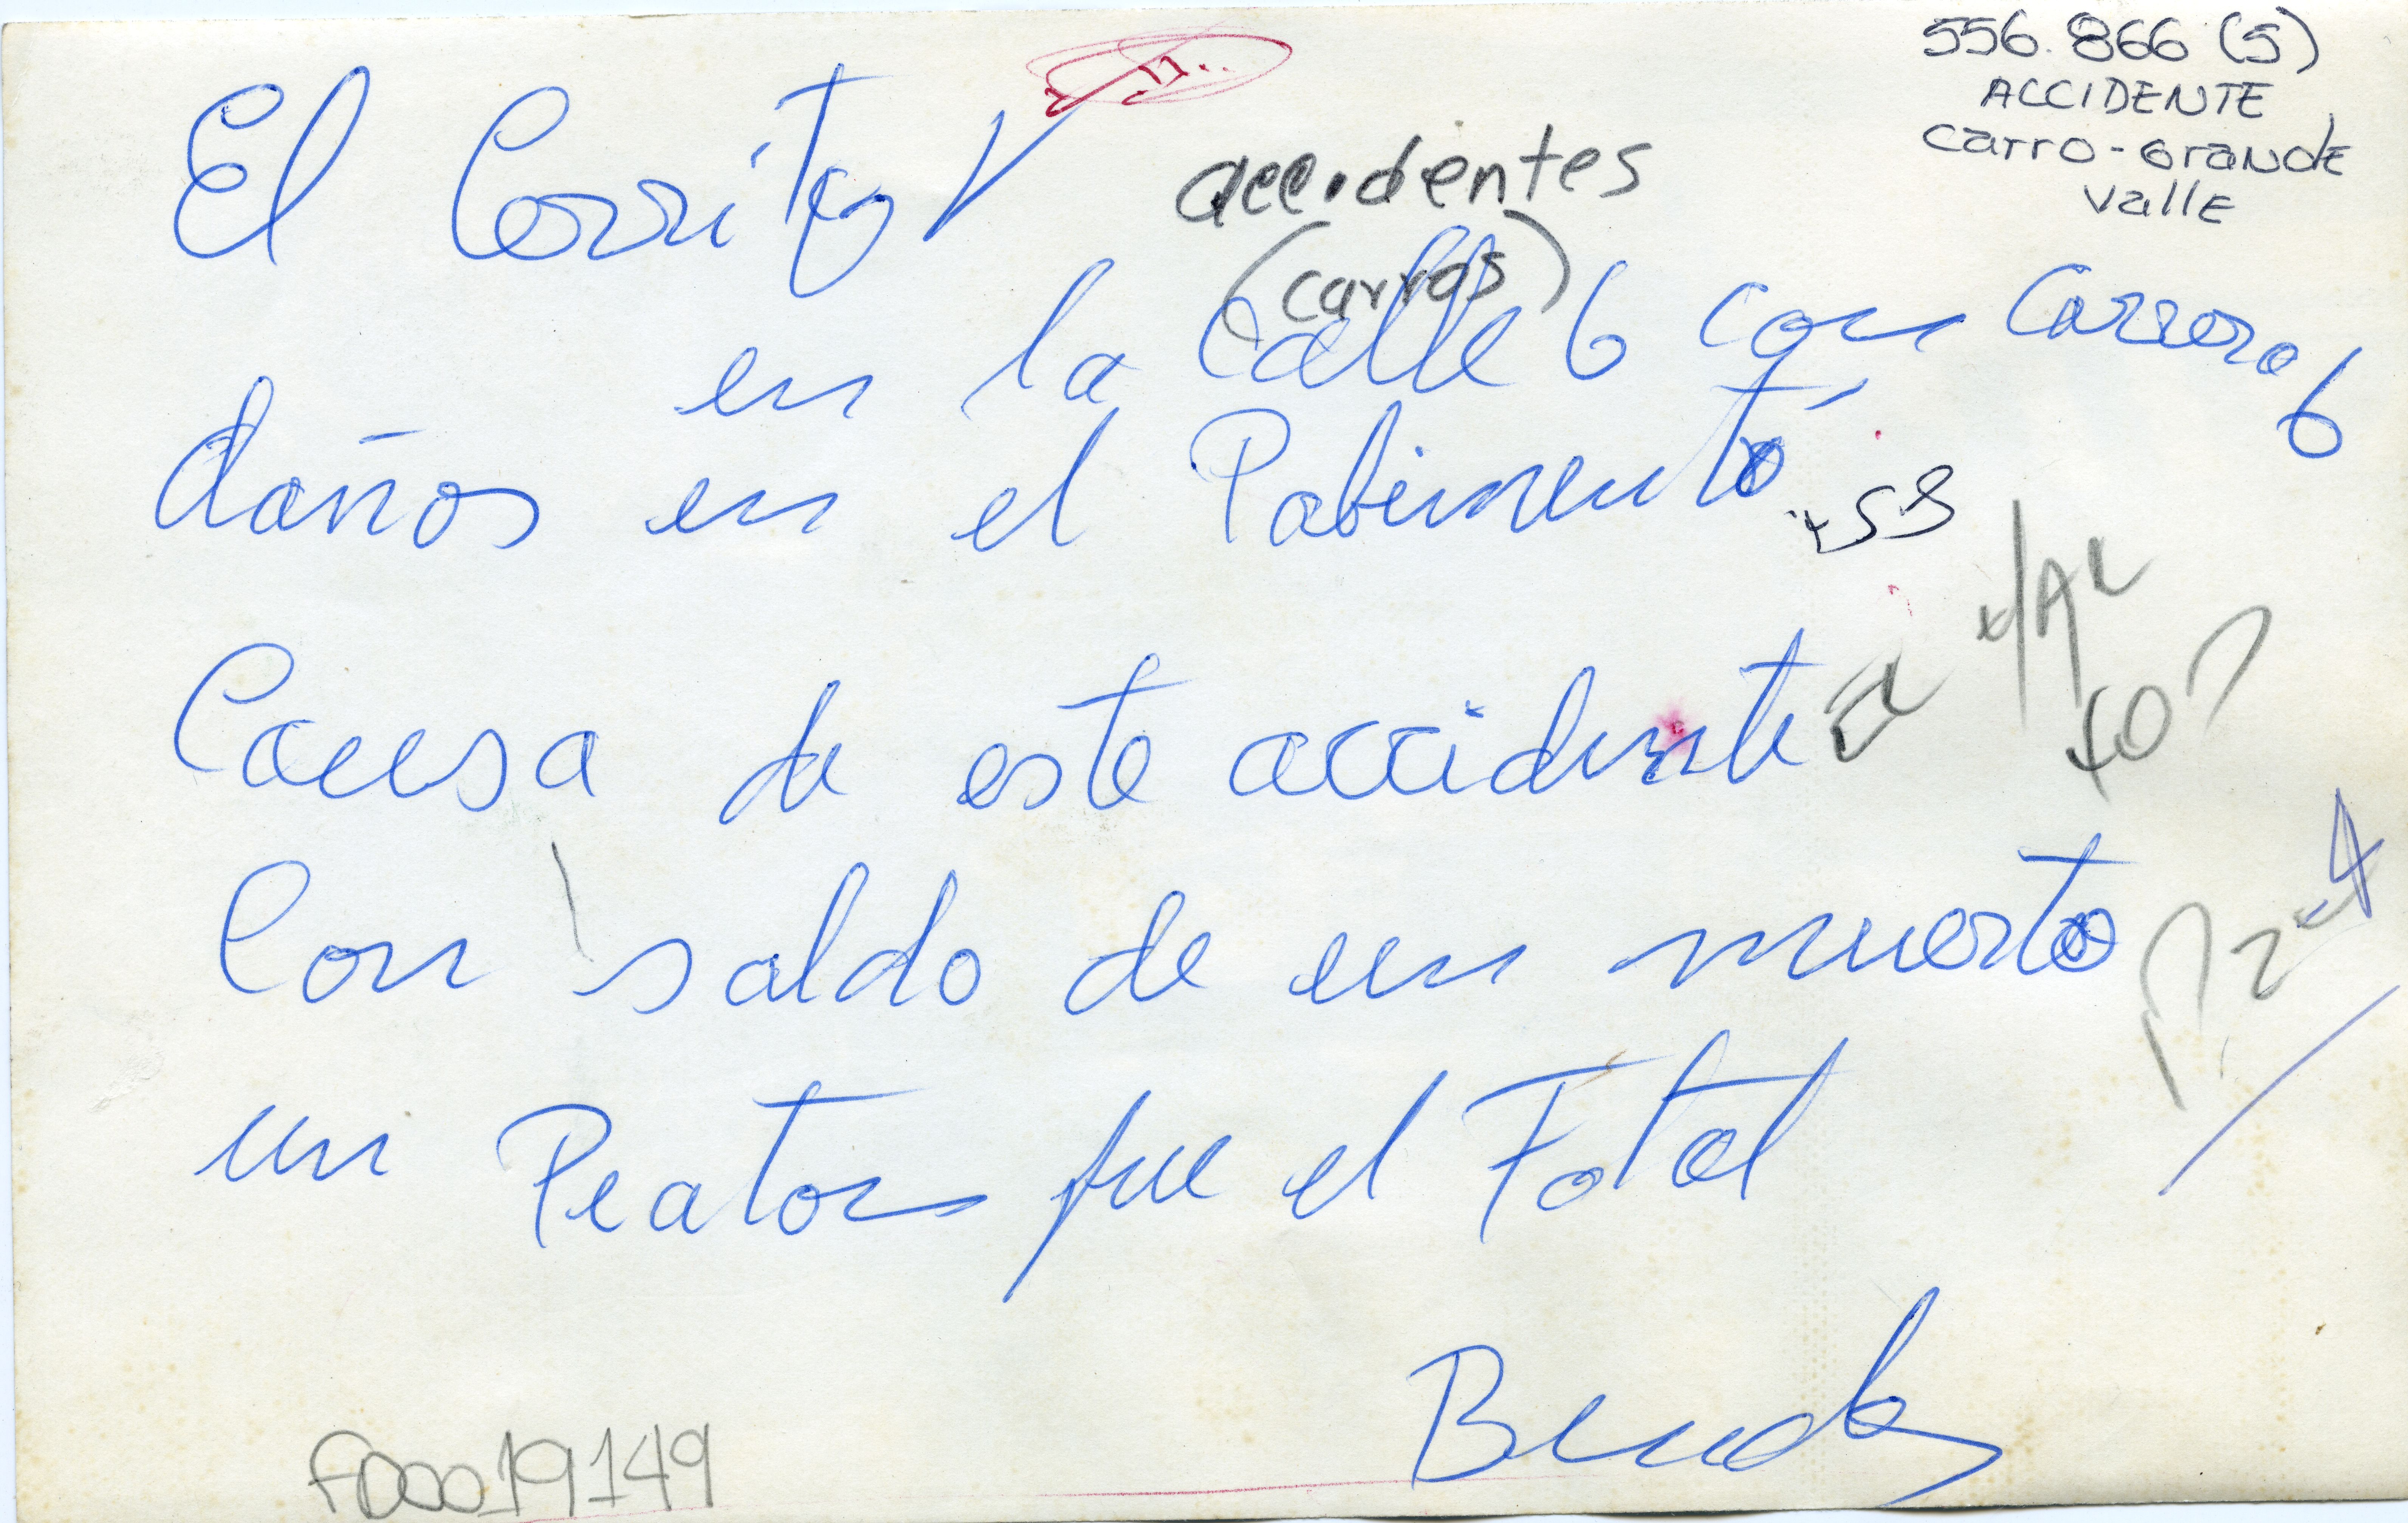 556.866 (S)
ACCIDENTE
carro-Grande
valle
El Cerrito V
accidentes
(carros)
en la Calle 6 con Carrera 6
daños en el Pabimento
Causa de este accidente
Con saldo de un muerto
un Peaton fue el Fatal
FD0019149